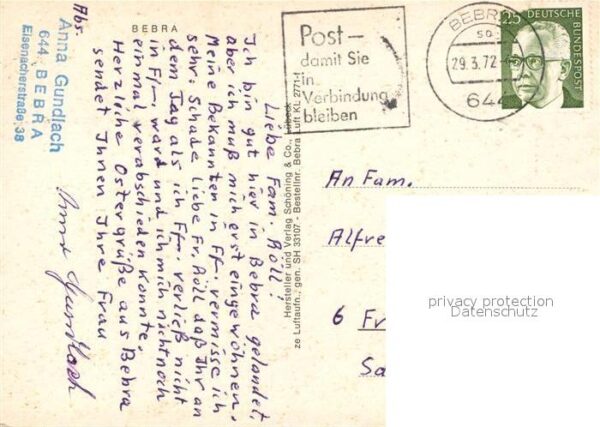 BEBRA
Abs.
Anna Gundlach
644 BEBRA
Eisenacherstraße 38
Liebe Fam. Röll!
Ich bin gut hier in Bebra gelandet,
aber ich muß mich erst eingewöhnen,
Meine Bekannten in Ff- vermisse ich
sehr. Schade liebe Fr. Röll daß Ihr an
dem Tag als ich Ff-. verließ nicht
in Ff-. ward und ich mich nicht noch
einmal verabschieden konnte.
Herzliche Ostergrüße aus Bebra
sendet Ihnen Ihre Frau
Anna Gundlach
Hersteller und Verlag Schöning & Co., Lübeck
ze Luftaufn., gen. SH 33107 - Bestellnr. Bebra Luft KL 2771-1
Post –
damit Sie
in
Verbindung
bleiben
BEBRA
29.3.72
644
25
DEUTSCHE
BUNDESPOST
An Fam.
Alfre
6 Fr
Sa
privacy protection
Datenschutz